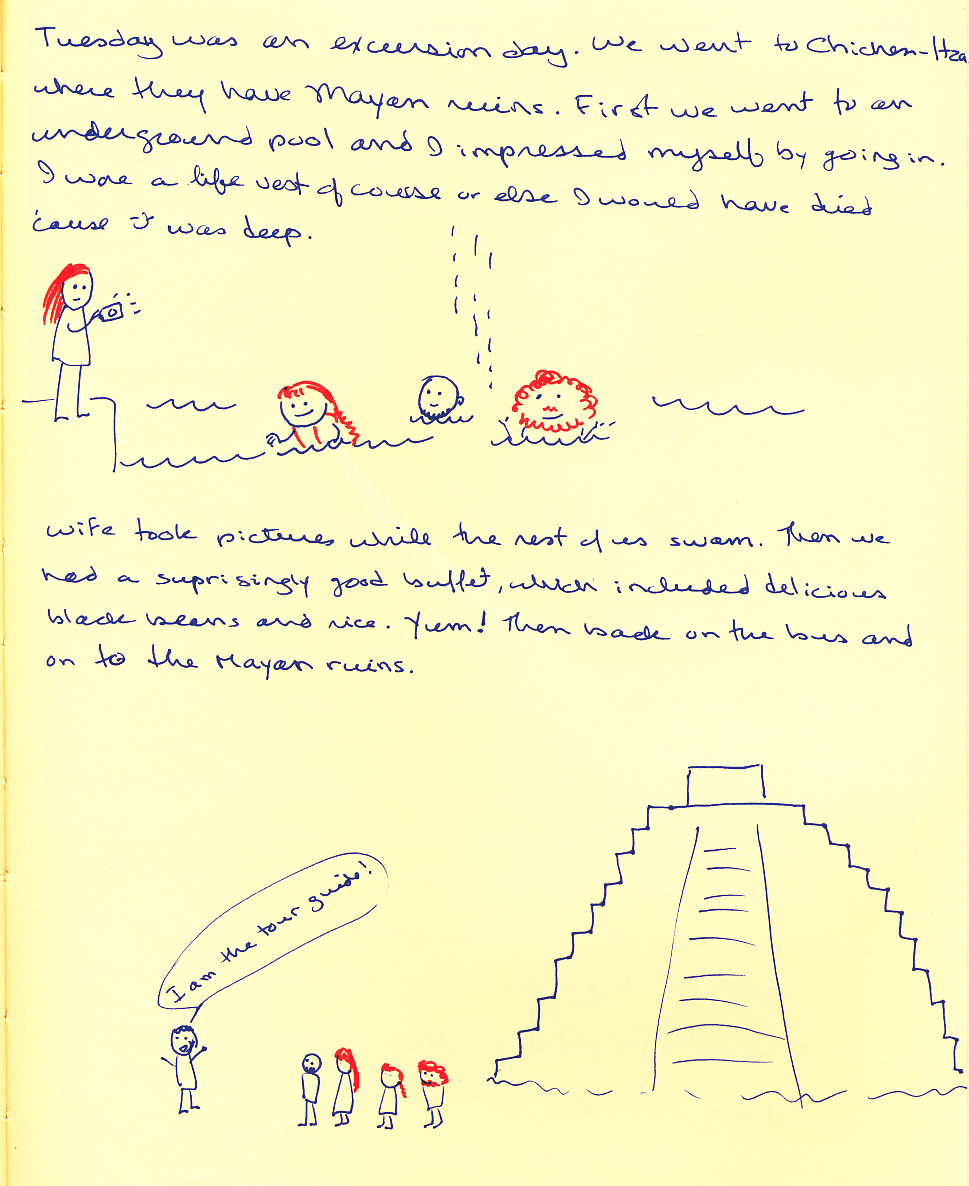 Tuesday was an excursion day. We went to Chichen-Itza
where they have Mayan ruins. First we went to an
underground pool and I impressed myself by going in.
I wore a life vest of course or else I would have died
'cause it was deep.
Wife took pictures while the rest of us swam. Then we
had a suprisingly good buffet, which included delicious
black beans and rice. Yum! Then back on the bus and
on to the Mayan ruins.
I am the tour guide!